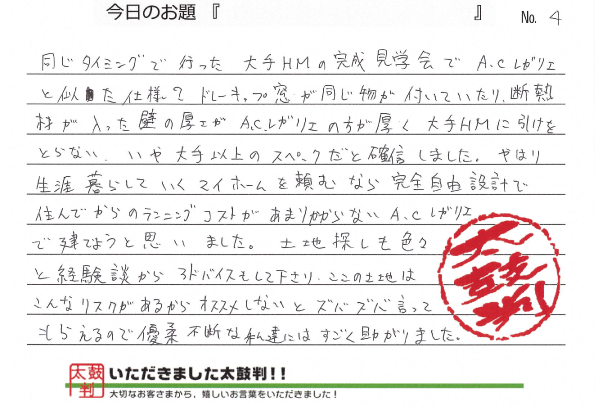 今日のお題『 』 No. 4
同じタイミングで行った大手HMの完成見学会でA.Cレガリエ
と似た仕様でドレーキップ窓が同じ物が付いていたり、断熱
材が入った壁の厚さがA.C.レガリエの方が厚く大手HMに引けを
とらない、いや大手以上のスペックだと確信しました。やはり
生涯暮らしていくマイホームを頼むなら完全自由設計で
住んでからのランニングコストがあまりかからないA.Cレガリエ
で建てようと思いました。土地探しも色々
と経験談からアドバイスもして下さり、ここの土地は
こんなリスクがあるからオススメしないとズバズバ言って
もらえるので優柔不断な私達にはすごく助かりました。
太鼓判
太鼓判 いただきました太鼓判!!
大切なお客さまから、嬉しいお言葉をいただきました!